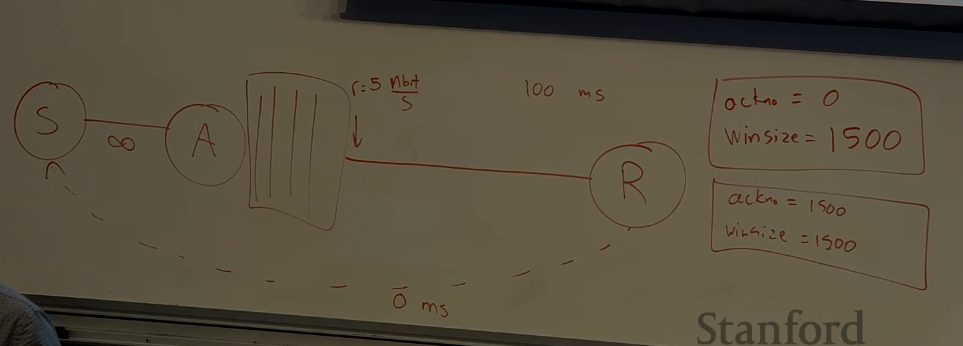 S
∞
A
r=5 Mbit/s
100 ms
R
0 ms
ackno = 0
winsize = 1500
ackno = 1500
winsize = 1500
Stanford